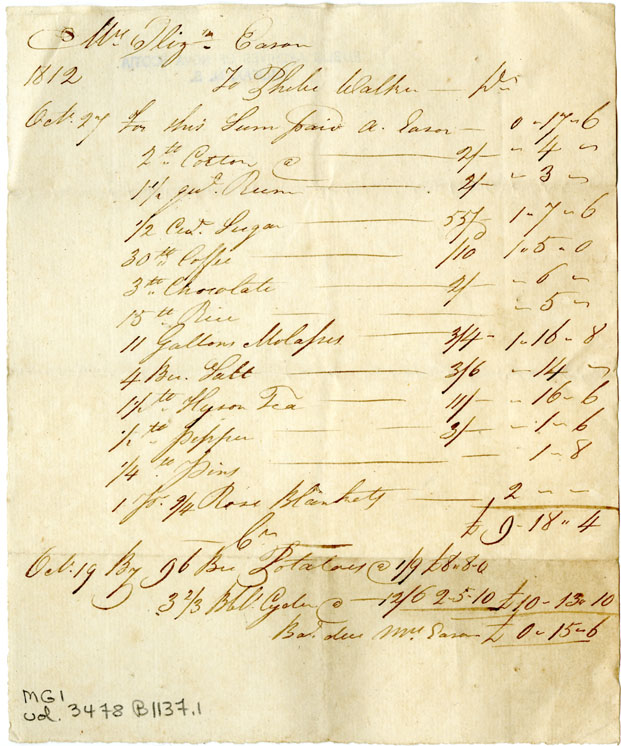 Mrs Elizth Eason
1812 To Phebe Walker — Dr
Octr. 27 For this Sum paid A. Eason — 0 - 17 - 6
2 lb Cotton @ — 2/- " 4 "
1 1/2 gal. Rum — 2/- " 3 "
1/2 Cwt. Sugar — 55/- 1 - 7 - 6
30 lb Coffee — 1/10 1 " 5 " 0
3 lb Chocolate — 2/- " 6 "
15 lb Rice — " 5 "
11 Gallons Molasses — 3/4 - 1 - 16 - 8
4 Bu. Salt — 3/6 " 14 "
1 1/2 lb Hyson Tea — 11/- " 16 - 6
1/2 lb Pepper — 3/- " 1 - 6
1/4 lb Pins — - 1 - 8
1 pr. 9/4 Rose Blankets — 2 " "
£ 9 - 18 " 4
Cr
Octr. 19 By 96 Bus Potatoes @ 1/9 £8 " 8 - 0
3 2/3 Bbl. Cyder @ — 12/6 2 - 5 - 10 £10 - 13 " 10
Bal. due Mrs Eason £ 0 " 15 " 6
MG1
vol. 3478 B1137.1